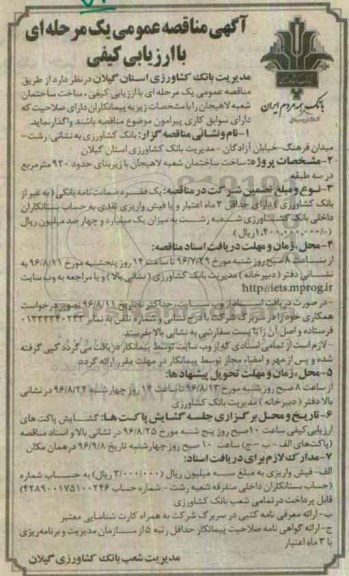 آگهی مناقصه عمومی یک مرحله ای
با ارزیابی کیفی
بانک همه مردم ایران
مدیریت بانک کشاورزی استان گیلان در نظر دارد از طریق
مناقصه عمومی یک مرحله ای با ارزیابی کیفی، ساخت ساختمان
شعبه لاهیجان را با مشخصات زیر به پیمانکاران دارای صلاحیت که
دارای سوابق کاری پیرامون موضوع مناقصه باشند واگذار نماید.
۱- نام و نشانی مناقصه گزار: بانک کشاورزی به نشانی رشت-
میدان فرهنگ- خیابان آزادگان - مدیریت بانک کشاورزی استان گیلان
۲- مشخصات پروژه: ساخت ساختمان شعبه لاهیجان با زیربنای حدود ۹۲۰ مترمربع
در سه طبقه
۳- نوع و مبلغ تضمین شرکت در مناقصه: یک فقره ضمانت نامه بانکی (به غیر از
بانک کشاورزی) دارای حداقل ۳ ماه اعتبار و یا فیش واریزی نقدی به حساب بستانکاران
داخلی بانک کشاورزی شعبه رشت به میزان یک میلیارد و چهارصد میلیون ریال
(۱/۴۰۰/۰۰۰/۰۰۰ ریال)
۴- محل، زمان و مهلت دریافت اسناد مناقصه:
از ساعت ۸ صبح روز شنبه مورخ ۹۶/۷/۲۹ تا ساعت ۱۴ روز پنجشنبه مورخ ۹۶/۸/۱۱ به
نشانی دفتر (دبیرخانه) مدیریت بانک کشاورزی (نشانی بالا) و یا مراجعه به وب سایت
http://iets.mprog.ir
- در صورت دریافت اسناد از وب سایت، حداکثر تا تاریخ ۹۶/۸/۱۱ تصویر درخواست
همکاری خود را در سربرگ شرکت با درج نشانی و شماره تلفن به نمابر ۰۱۳۳۳۳۴۰۲۳۳
فرستاده و اصل آن را با پست سفارشی به نشانی بالا بفرستند.
- لازم است از تمامی اسنادی که از وب سایت توسط پیمانکار دریافت می گردد کپی گرفته
شده و پس از مهر و امضاء مجاز توسط پیمانکار در مهلت مقرر ارائه گردد.
۵- محل، زمان و مهلت تحویل پیشنهادها:
از ساعت ۸ صبح روز شنبه مورخ ۹۶/۸/۱۳ تا ساعت ۱۴ روز چهارشنبه ۹۶/۸/۲۴ در نشانی
بالا دفتر (دبیرخانه) مدیریت بانک کشاورزی
۶- تاریخ و محل برگزاری جلسه گشایش پاکت ها: گشایش پاکت های
ارزیابی کیفی ساعت ۱۰ صبح روز پنج شنبه مورخ ۹۶/۸/۲۵ در نشانی بالا و اسناد مناقصه
(پاکت های الف - ب - ج) ساعت ۱۰ صبح روز چهارشنبه تاریخ ۹۶/۹/۸ در همان مکان
۷- مدارک لازم برای دریافت اسناد:
الف- فیش واریزی به مبلغ سه میلیون ریال (۳/۰۰۰/۰۰۰ ریال) به حساب شماره
(حساب بستانکاران داخلی متفرقه شعبه رشت - شماره حساب ۴۲۸۹۰۰۱۷۵۱۰۰۲۴۶)
قابل پرداخت در تمامی شعب بانک کشاورزی
ب- ارائه معرفی نامه کتبی در سربرگ شرکت به همراه کارت شناسایی معتبر
ج- ارائه گواهی نامه صلاحیت پیمانکار حداقل رتبه ۵ از سازمان مدیریت و برنامه ریزی
با ۳ ماه اعتبار
مدیریت شعب بانک کشاورزی گیلان